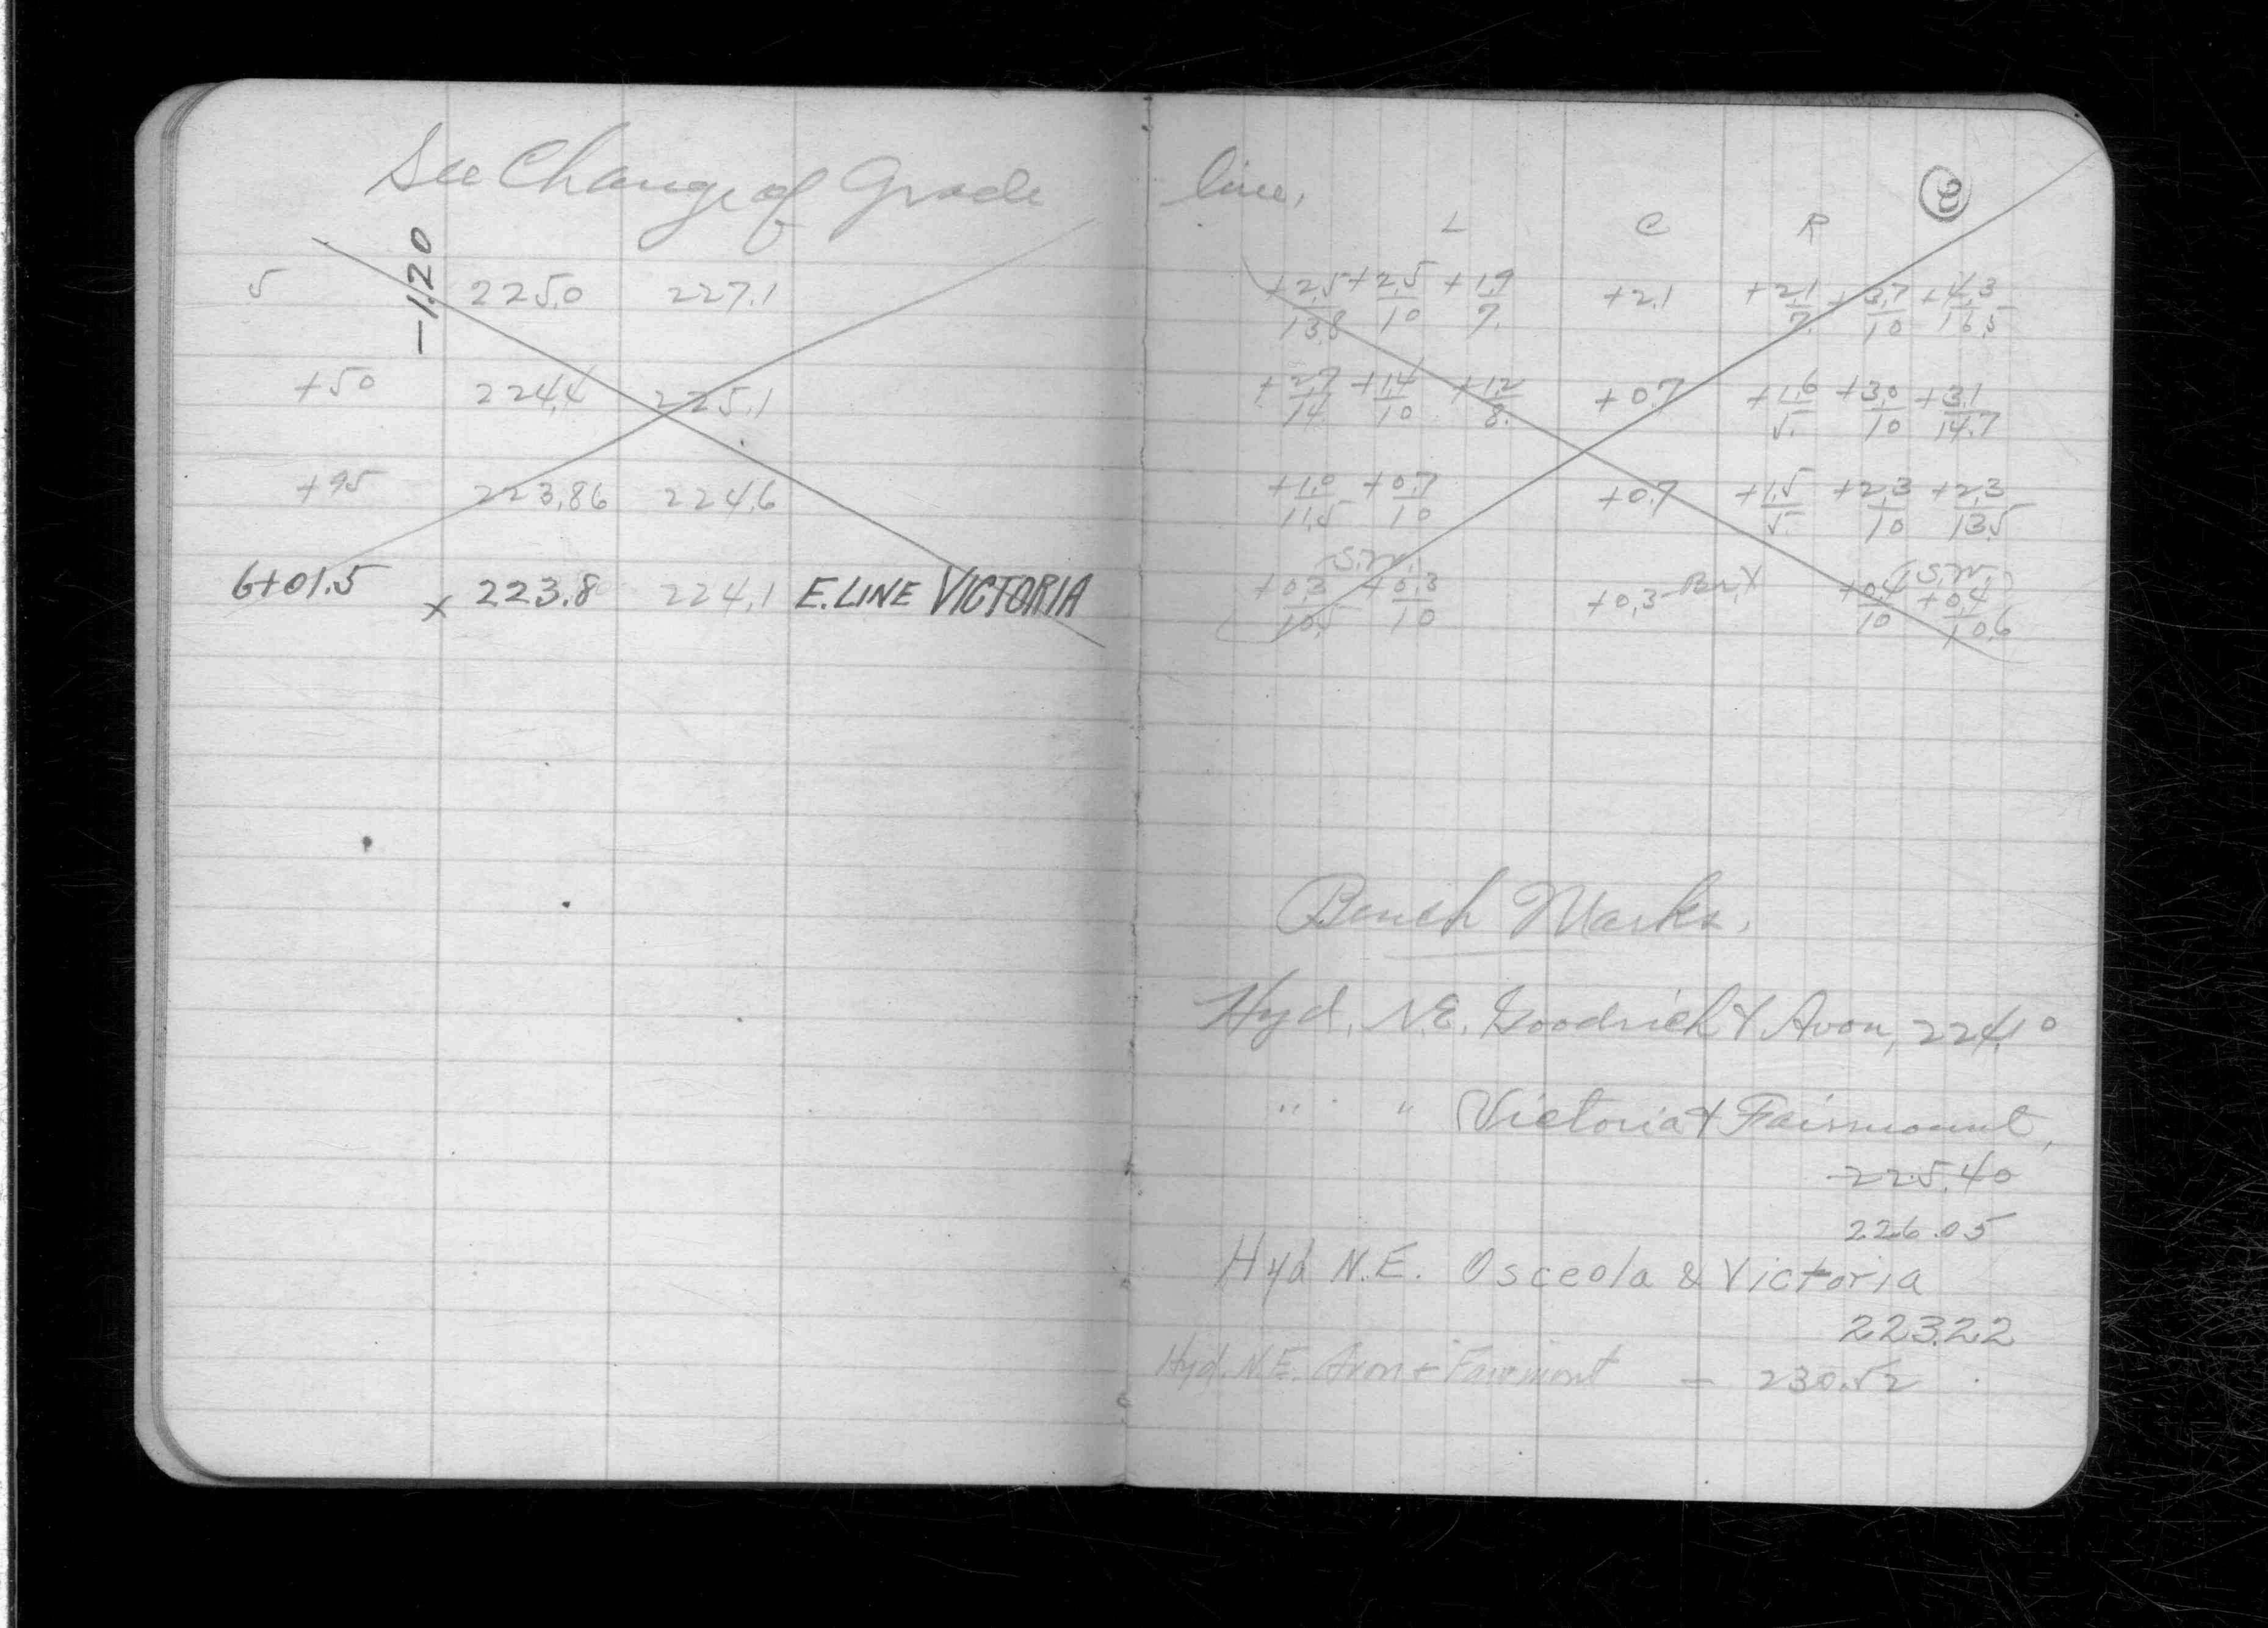 See Change of Grade line,
2
L C R
-1.20
5 225.0 227.1 +2.5/13.8 +2.5/10 +1.9/7. +2.1 +2.1/7. +3.7/10 +4.3/16.5
+50 224.4 225.1 +2.7/14 +1.4/10 +1.2/8. +0.7 +1.6/5. +3.0/10 +3.1/14.7
+95 223.86 224.6 +1.0/11.5 +0.7/10 +0.7 +1.5/5 +2.3/10 +2.3/13.5
S.W. (S.W.)
6+01.5 x 223.8 224.1 E. LINE VICTORIA +0.3/10.5 +0.3/10 +0.3 +0.4/10 +0.4/10.6
Bench Marks.
Hyd. N.E. Goodrich & Avon, 224.10
" " Victoria & Fairmount,
225.40
226.05
Hyd N.E. Osceola & Victoria
223.22
Hyd. N.E. Avon + Fairmont - 230.52